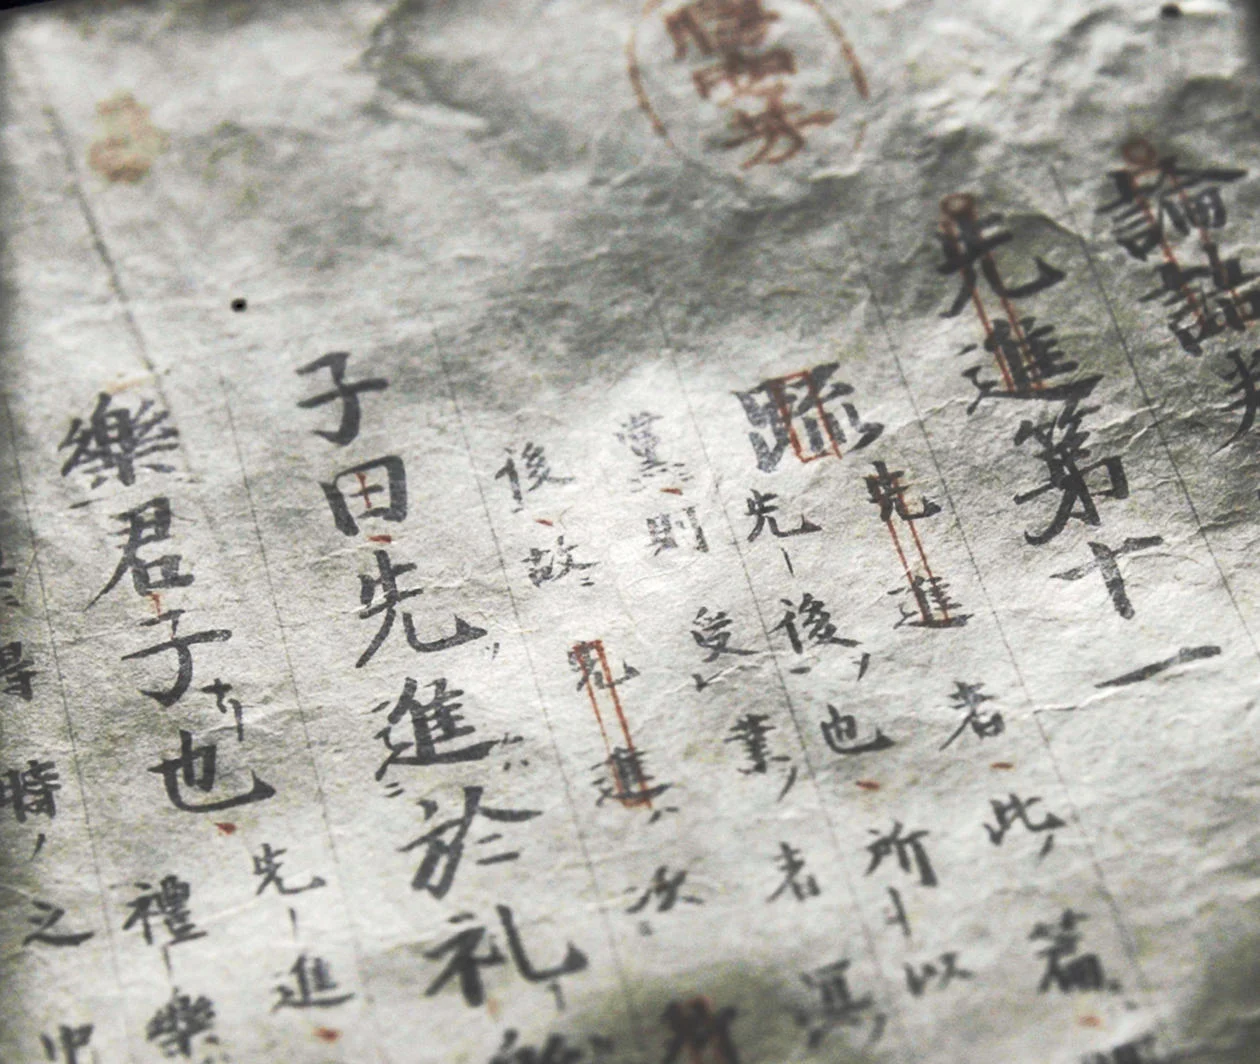 論語
先進第十一
疏 先進者此篇
先後也所以
黨則受業者
後故先進次
子曰先進於礼
樂君子也 先進
禮樂
得時之中